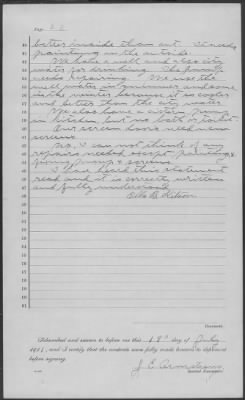 Page 22
better inside than out. It needs
painting on the outside.
We have a well and also city
water for drinking. The pump
needs repairing. We use the
well water in summer and some
in the winter because it is cooler
and better than the city water.
We also have a cistern pump
in kitchen, but no bath or toilet.
Our screen doors need new
screens.
No, I can not think of any
repairs needed except painting,
fixing pump & screens.
I have heard this statement
read and it is correctly written
and fully understood.
Deponent.
Subscribed and sworn to before me this 18" day of July
1921, and I certify that the contents were fully made known to deponent
before signing.
J. E. Armstrong
Special Examiner.